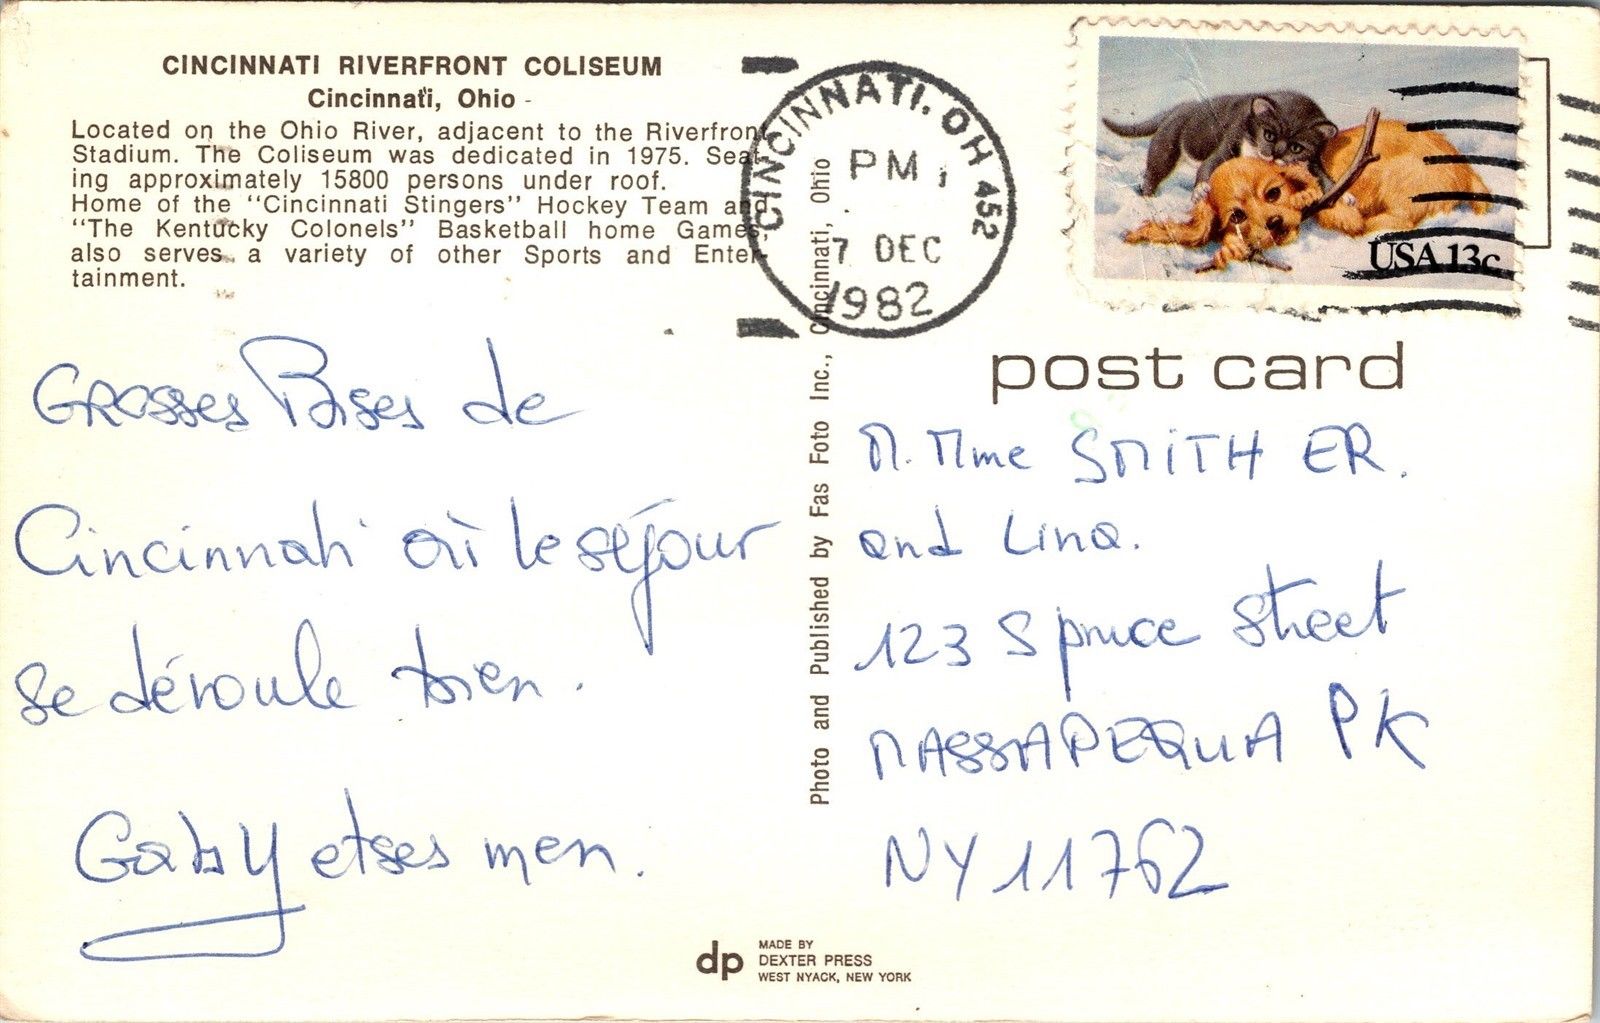 CINCINNATI RIVERFRONT COLISEUM
Cincinnati, Ohio
Located on the Ohio River, adjacent to the Riverfront
Stadium. The Coliseum was dedicated in 1975. Seat-
ing approximately 15800 persons under roof.
Home of the "Cincinnati Stingers" Hockey Team and
"The Kentucky Colonels" Basketball home Games,
also serves a variety of other Sports and Enter-
tainment.
CINCINNATI. OH 452
PM
7 DEC
1982
USA 13c
GROSSES Bises de
Cincinnati où le séjour
se déroule bien.
Gaby et ses men.
Photo and Published by Fas Foto Inc., Cincinnati, Ohio
post card
M. Mme SMITH ER.
and Lina.
123 Spruce Street
MASSAPEQUA PK
NY 11762
dp
MADE BY
DEXTER PRESS
WEST NYACK, NEW YORK